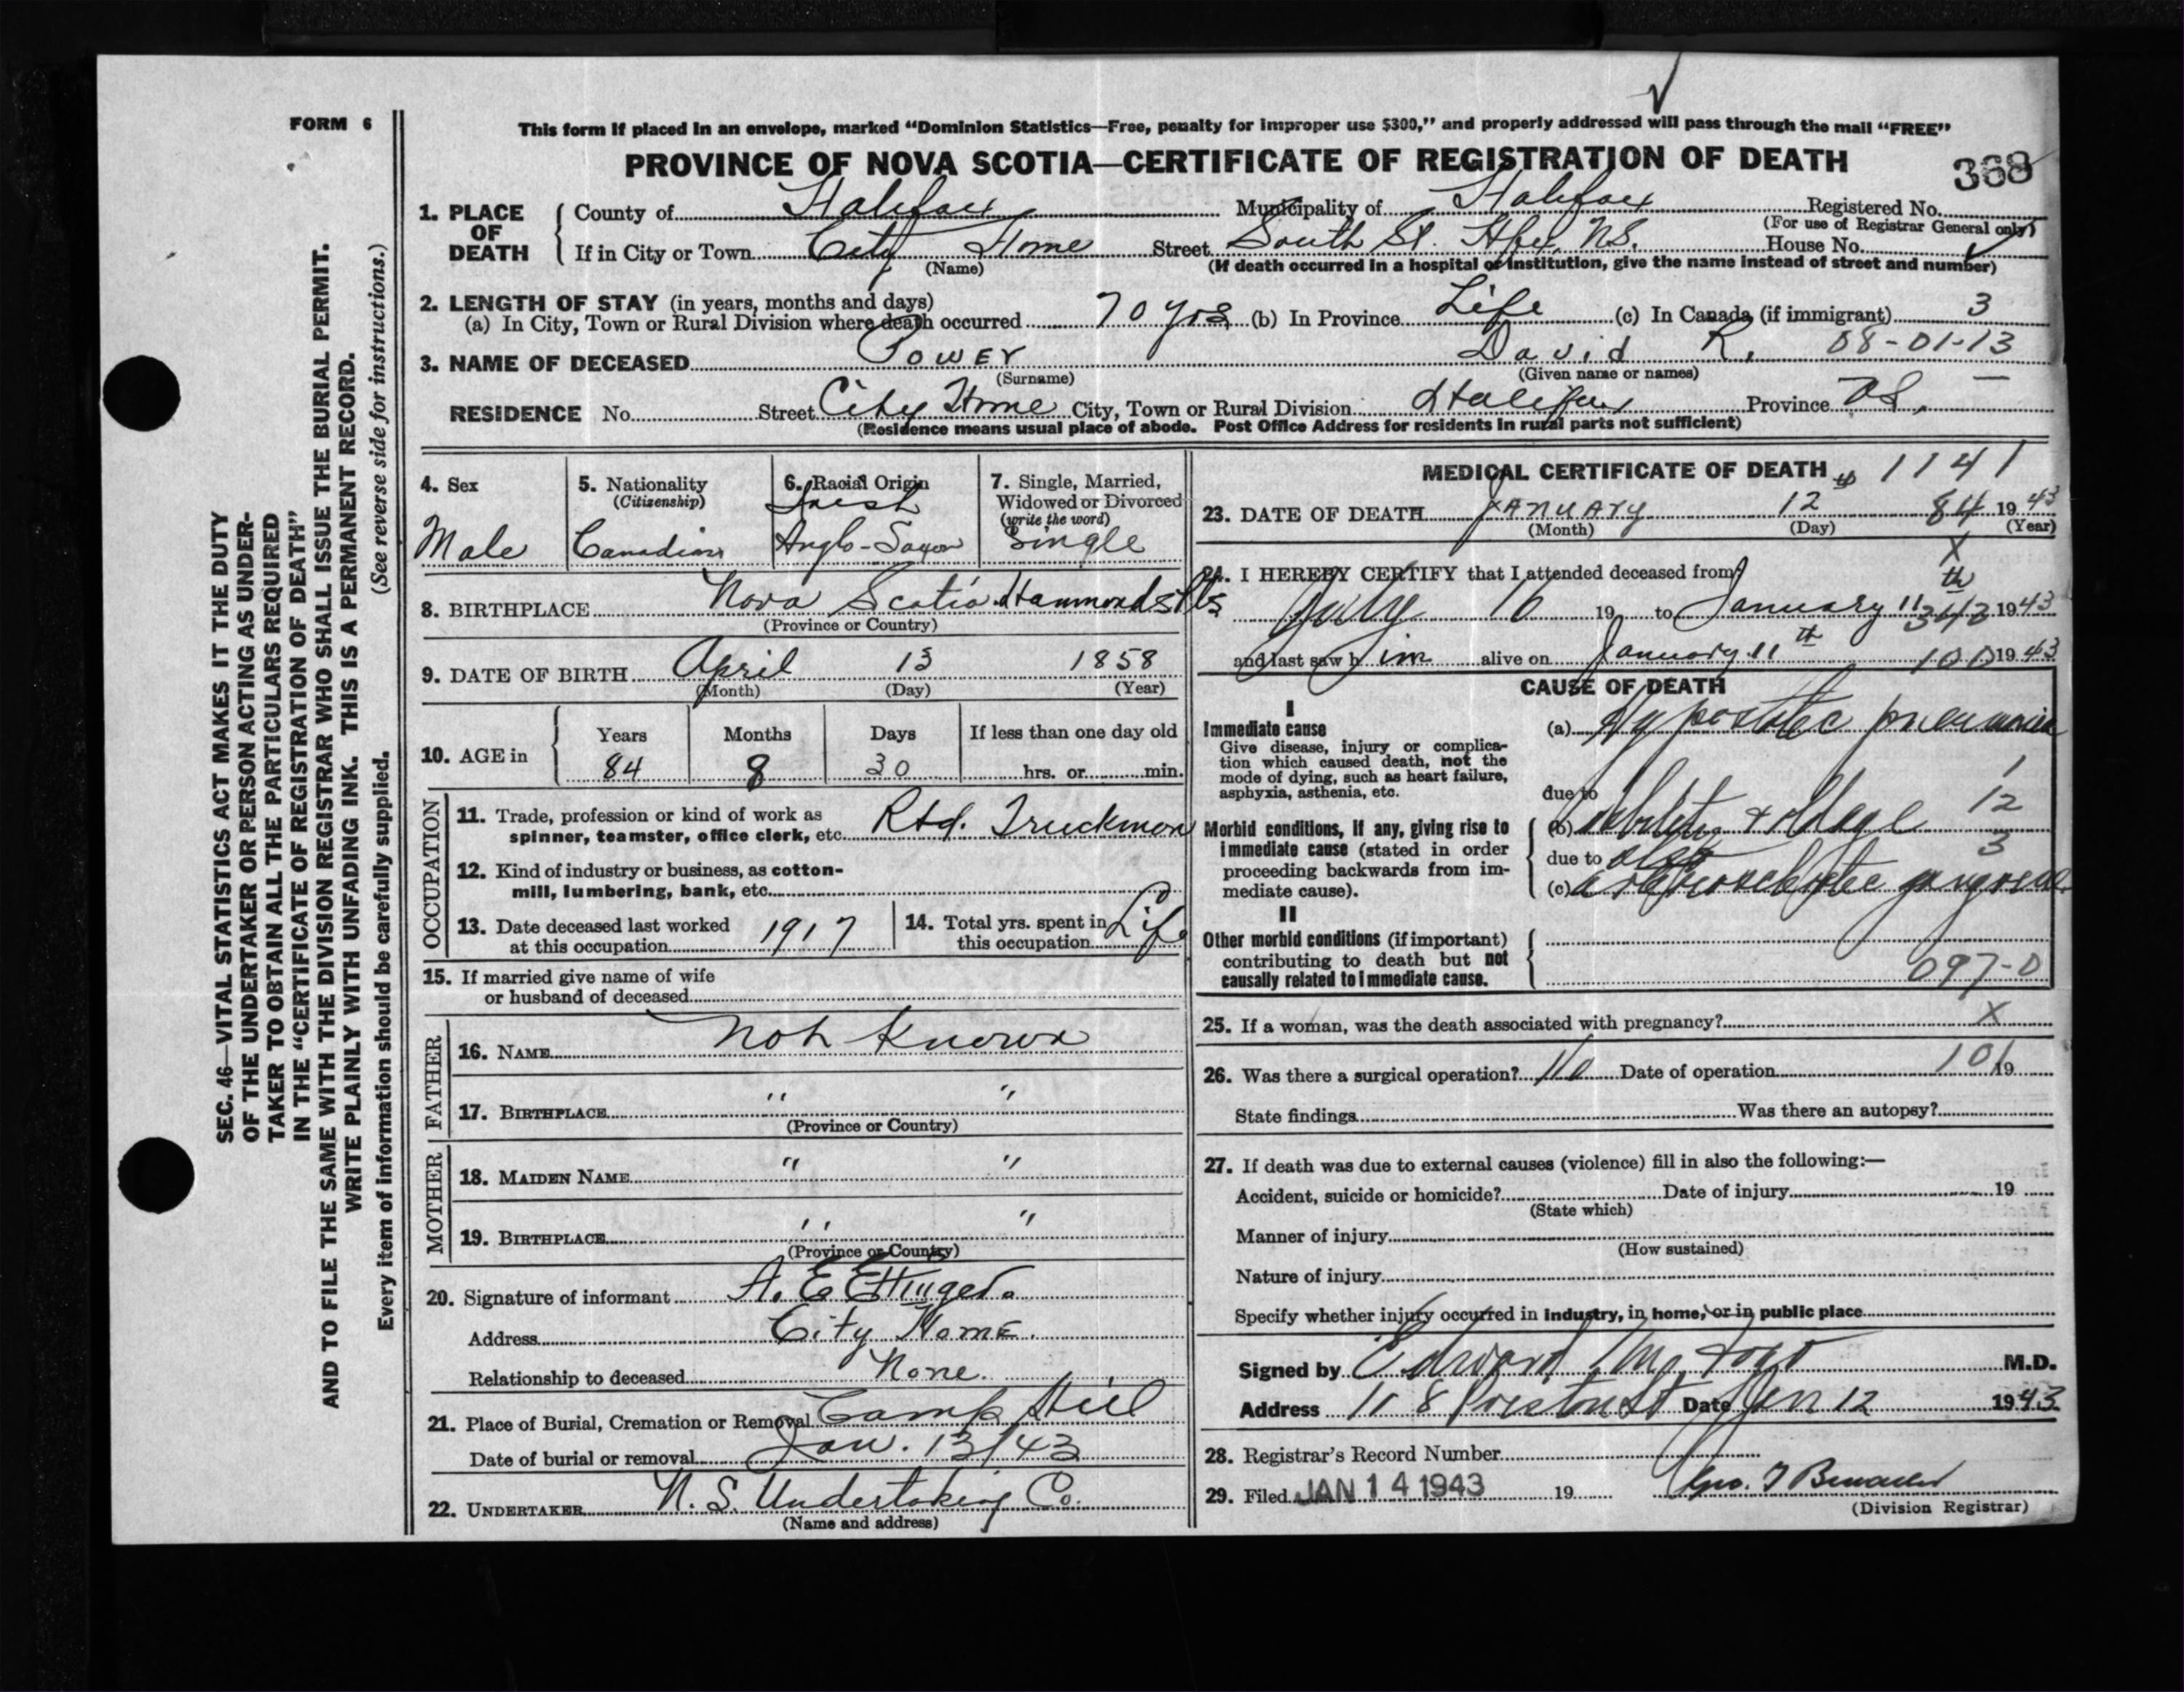 FORM 6
SEC. 46—VITAL STATISTICS ACT MAKES IT THE DUTY
OF THE UNDERTAKER OR PERSON ACTING AS UNDER-
TAKER TO OBTAIN ALL THE PARTICULARS REQUIRED
IN THE "CERTIFICATE OF REGISTRATION OF DEATH"
AND TO FILE THE SAME WITH THE DIVISION REGISTRAR WHO SHALL ISSUE THE BURIAL PERMIT.
WRITE PLAINLY WITH UNFADING INK. THIS IS A PERMANENT RECORD.
Every item of information should be carefully supplied. (See reverse side for instructions.)
This form if placed in an envelope, marked "Dominion Statistics—Free, penalty for improper use $300," and properly addressed will pass through the mail "FREE"
PROVINCE OF NOVA SCOTIA—CERTIFICATE OF REGISTRATION OF DEATH
368
1. PLACE OF DEATH County of Halifax Municipality of Halifax Registered No.
(For use of Registrar General only)
If in City or Town City Home Street South St. Hfx N.S. House No.
(Name) (If death occurred in a hospital or institution, give the name instead of street and number)
2. LENGTH OF STAY (in years, months and days)
(a) In City, Town or Rural Division where death occurred 70 yrs (b) In Province Life (c) In Canada (if immigrant) 3
3. NAME OF DECEASED Power David R. 08-01-13
(Surname) (Given name or names)
RESIDENCE No. Street City Home City, Town or Rural Division Halifax Province N.S. —
(Residence means usual place of abode. Post Office Address for residents in rural parts not sufficient)
4. Sex
Male
5. Nationality
(Citizenship)
Canadian
6. Racial Origin
Irish
Anglo-Saxon
7. Single, Married,
Widowed or Divorced
(write the word)
Single
8. BIRTHPLACE Nova Scotia Hammonds Pls
(Province or Country)
9. DATE OF BIRTH April 13 1858
(Month) (Day) (Year)
10. AGE in Years Months Days If less than one day old
84 8 30 hrs. or min.
OCCUPATION
11. Trade, profession or kind of work as
spinner, teamster, office clerk, etc. Rtd. Truckman
12. Kind of industry or business, as cotton-
mill, lumbering, bank, etc.
13. Date deceased last worked
at this occupation 1917
14. Total yrs. spent in
this occupation Life
15. If married give name of wife
or husband of deceased
FATHER
16. NAME Not Known
17. BIRTHPLACE " "
(Province or Country)
MOTHER
18. MAIDEN NAME " "
19. BIRTHPLACE " "
(Province or Country)
20. Signature of informant A. E Ettinger.
Address City Home.
Relationship to deceased None.
21. Place of Burial, Cremation or Removal Camp Hill
Date of burial or removal Jan. 13/43
22. UNDERTAKER N. S. Undertaking Co.
(Name and address)
MEDICAL CERTIFICATE OF DEATH 1141
23. DATE OF DEATH January 12 84 1943
(Month) (Day) (Year)
X
24. I HEREBY CERTIFY that I attended deceased from
July 16 19 to January 11th 342 1943
and last saw him alive on January 11th 100 1943
CAUSE OF DEATH
I
Immediate cause
Give disease, injury or complica-
tion which caused death, not the
mode of dying, such as heart failure,
asphyxia, asthenia, etc.
(a) Hypostatic pneumonia
due to 1
Morbid conditions, if any, giving rise to
immediate cause (stated in order
proceeding backwards from im-
mediate cause).
(b) debility & old age 12
due to also 3
(c) arteriosclerotic gangrene
II
Other morbid conditions (if important)
contributing to death but not
causally related to immediate cause.
097-0
25. If a woman, was the death associated with pregnancy? X
26. Was there a surgical operation? No Date of operation 101 19
State findings Was there an autopsy?
27. If death was due to external causes (violence) fill in also the following:—
Accident, suicide or homicide? Date of injury 19
(State which)
Manner of injury
(How sustained)
Nature of injury
Specify whether injury occurred in industry, in home, or in public place
Signed by Edward M.D.
Address 118 Preston St Date Jan 12 1943
28. Registrar's Record Number
29. Filed JAN 14 1943 19 Geo.
(Division Registrar)